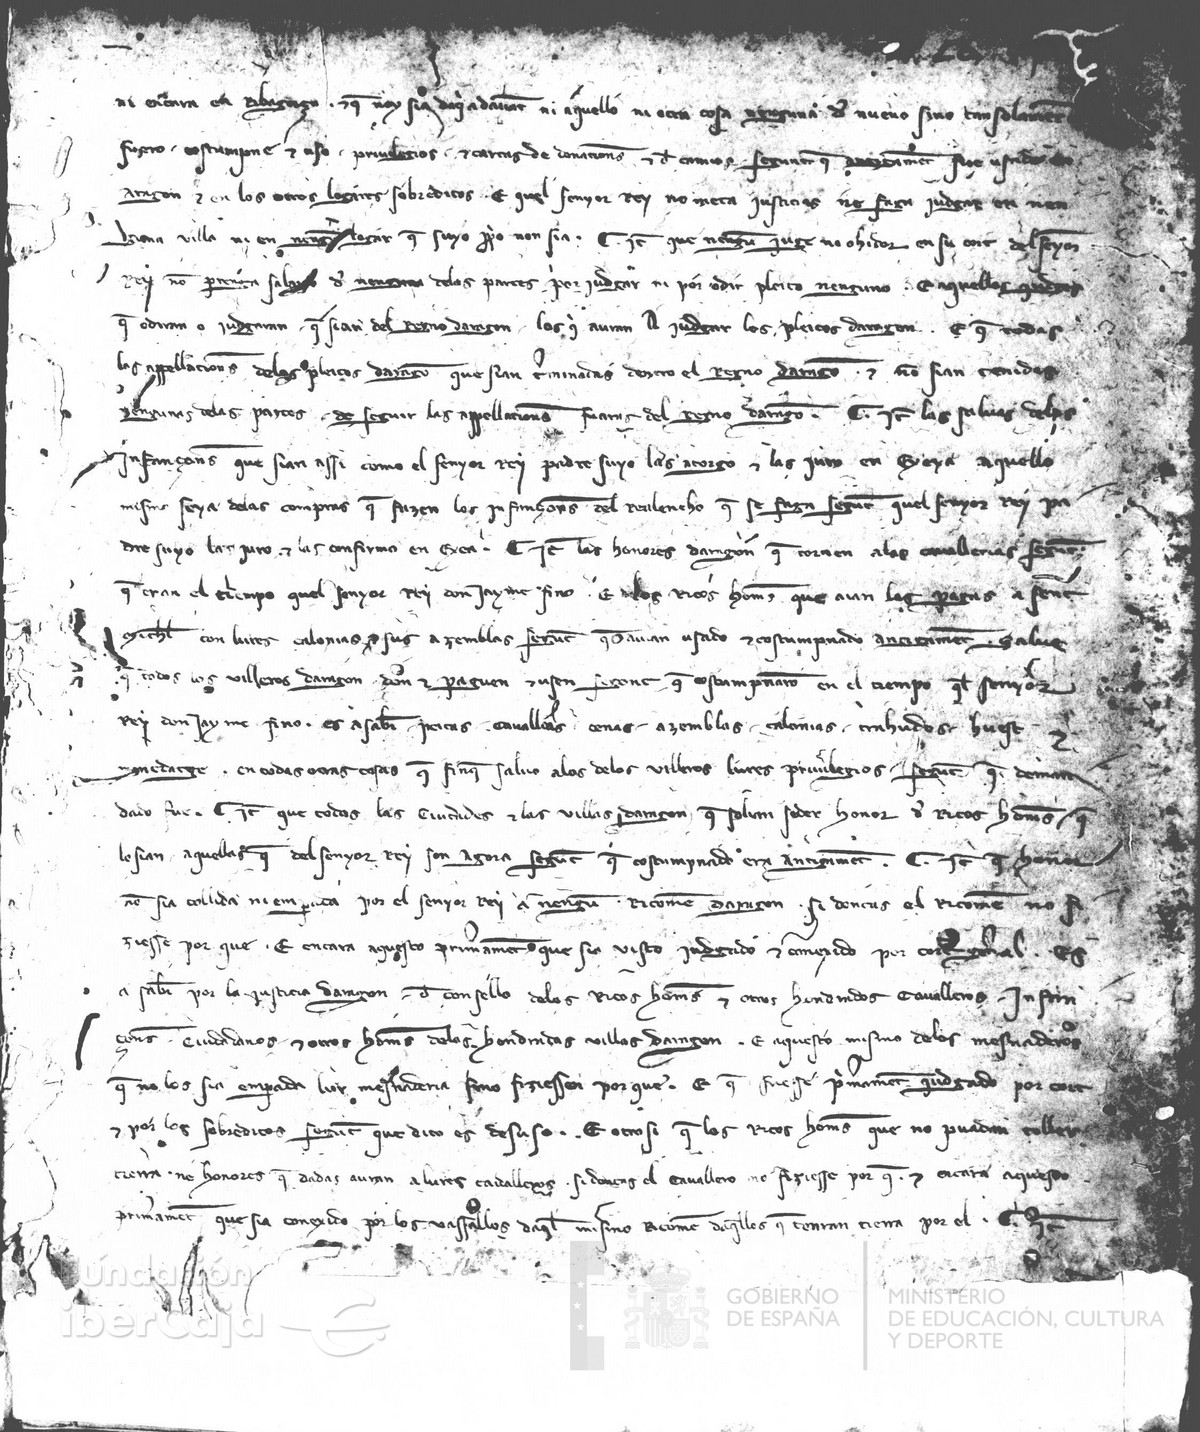 ni encara en Ribagorça · e q̄ noy sia daqi adauāt ni aquello ni otra cosa nenguna d̄ nueuo sino tan solamēt
fuero · costumpne e uso · priuilegios · e cartas de donacions e d̄ camios · segunt q̄ antigamēt fue usado en
aragon e en los otros logares sobreditos · E quel senyor Rey no meta justicias ni faga judgar en nen
guna villa ni en nengū logar q̄ suyo p̄pio non sia · C. Jt̄ que nengū juge no ohidor en su cort del senyor
Rey nō prenga salario d̄ nenguna delas partes por judgar ni por odir pleito nenguno · E aquellos judges
q̄ odiran o judgaran · q̄ sian del Regno daragon · los q̄ auran A judgar los pleitos daragon · E q̄ todas
las appellacions delos pleitos daragō que sian t̄minadas dentro el Regno daragō · e nō sian tenidos
nengunas delas partes · de seguir las appellacions fueras del Regno daragō · C. Jt̄ las saluas delas
Infançons que sian assi como el senyor Rey padre suyo las atorgo e las juro en Exeya aquello
mismo seya delas compras q̄ fazen los infançons del Realencho q̄ se faga segūt quel senyor Rey pa
dre suyo las juro · e las confirmo en Exea · C. Jt̄ las honores daragon q̄ tornen a las cauallerias segūt
q̄ eran el tiempo quel senyor Rey don Jayme fino · E los Ricos hom̄s que aian las pagas a sent
Michl̄ con lures calonias e sus azemblas segūt q̄ auian usado e costumpnado antigamēt · Salue
q̄ todos los villeros daragon · don e paguen e usen segunt q̄ costumpnarō en el tiempo q̄l senyor
Rey don Jayme fino · es a sab̄ · peitas · Caualleās cenas · azemblas · calonias · trahudos huest e
monedatge · en todas otras cosas q̄ finq̄ saluo alos delos villeros lures priuilegios segūt q̄ deman
dado fue · C. Jt̄ que todas las Ciutades e las villas daragon q̄ solian seder honor d̄ Ricos hom̄s q̄
lo sian · aquellas q̄ del senyor Rey son agora segūt q̄ costumpnado era antigamēt · C. Jt̄ q̄ honor
nō sia tollida ni emparada por el senyor Rey a nengū Ricome daragon · si doncas el Ricome no fi
ziesse por que · E encara aquesto primamēt que sia visto judgado e conexido por cort gn̄ral · Es
a sab̄ por la justicia daragon · d̄ consello delos Ricos hom̄s e otros hondrados Caualleros · Infan
çons · Ciudadanos · e otros hom̄s delas hondradas villas daragon · E aquesto mismo delos mesnaderos
q̄ no los sia emparada lur mesnaderia sino fiziessen por que · E q̄ fuesse p̄mamēt judgado por cort
e por los sobreditos segūt que dito es desuso · E otrosi q̄ los Ricos hom̄s que no puedan toller
tierra · ne honores q̄ dadas auran a lures cauallēros · si doncas el Cauallero no fiziesse por q̄ · e encara aquesto
primamēt que sia conexido por los vassallos daq̄l mismo Ricome daq̄llos q̄ tenran tierra por el · C. Jt̄
fundación
iberCaja
GOBIERNO
DE ESPAÑA
MINISTERIO
DE EDUCACIÓN, CULTURA
Y DEPORTE